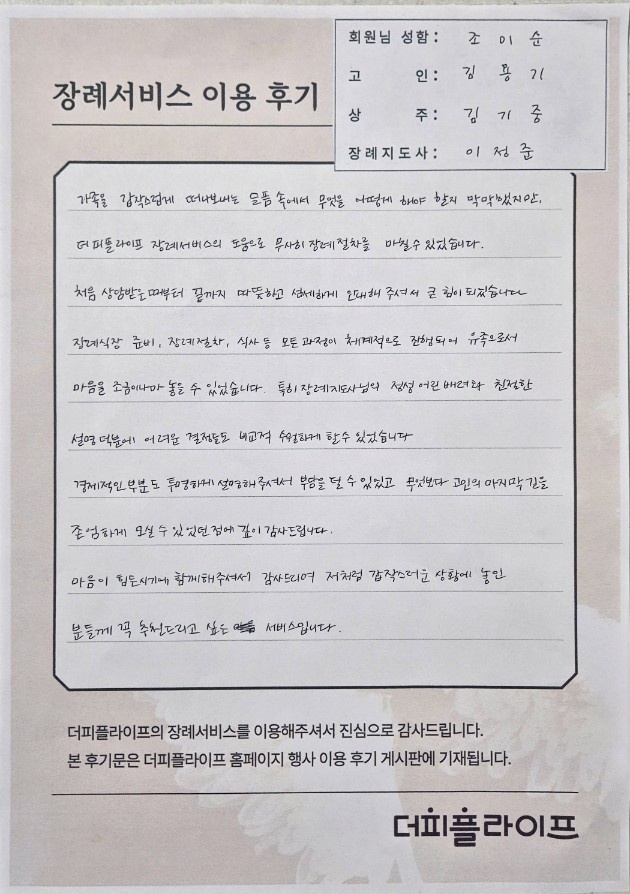 회원님 성함: 조이순
고 인: 김용기
상 주: 김기중
장례지도사: 이정준
장례서비스 이용 후기
가족을 갑작스럽게 떠나보내는 슬픔 속에서 무엇을 어떻게 해야 할지 막막했지만,
더피플라이프 장례서비스의 도움으로 무사히 장례절차를 마칠 수 있었습니다.
처음 상담받는때부터 끝까지 따뜻하고 섬세하게 응대해 주셔서 큰 힘이 되었습니다
장례식장 준비, 장례절차, 식사 등 모든 과정이 체계적으로 진행되어 유족으로서
마음을 조금이나마 놓을 수 있었습니다. 특히 장례지도사님의 정성 어린 배려와 친절한
설명 덕분에 어려운 결정들도 비교적 수월하게 할 수 있었습니다
경제적인 부분도 투명하게 설명해주셔서 부담을 덜 수 있었고 무엇보다 고인의 마지막 길을
존엄하게 모실 수 있었던 점에 깊이 감사드립니다.
마음이 힘든시기에 함께해주셔서 감사드리며 저처럼 갑작스러운 상황에 놓인
분들께 꼭 추천드리고 싶은 서비스입니다.
더피플라이프의 장례서비스를 이용해주셔서 진심으로 감사드립니다.
본 후기문은 더피플라이프 홈페이지 행사 이용 후기 게시판에 기재됩니다.
더피플라이프